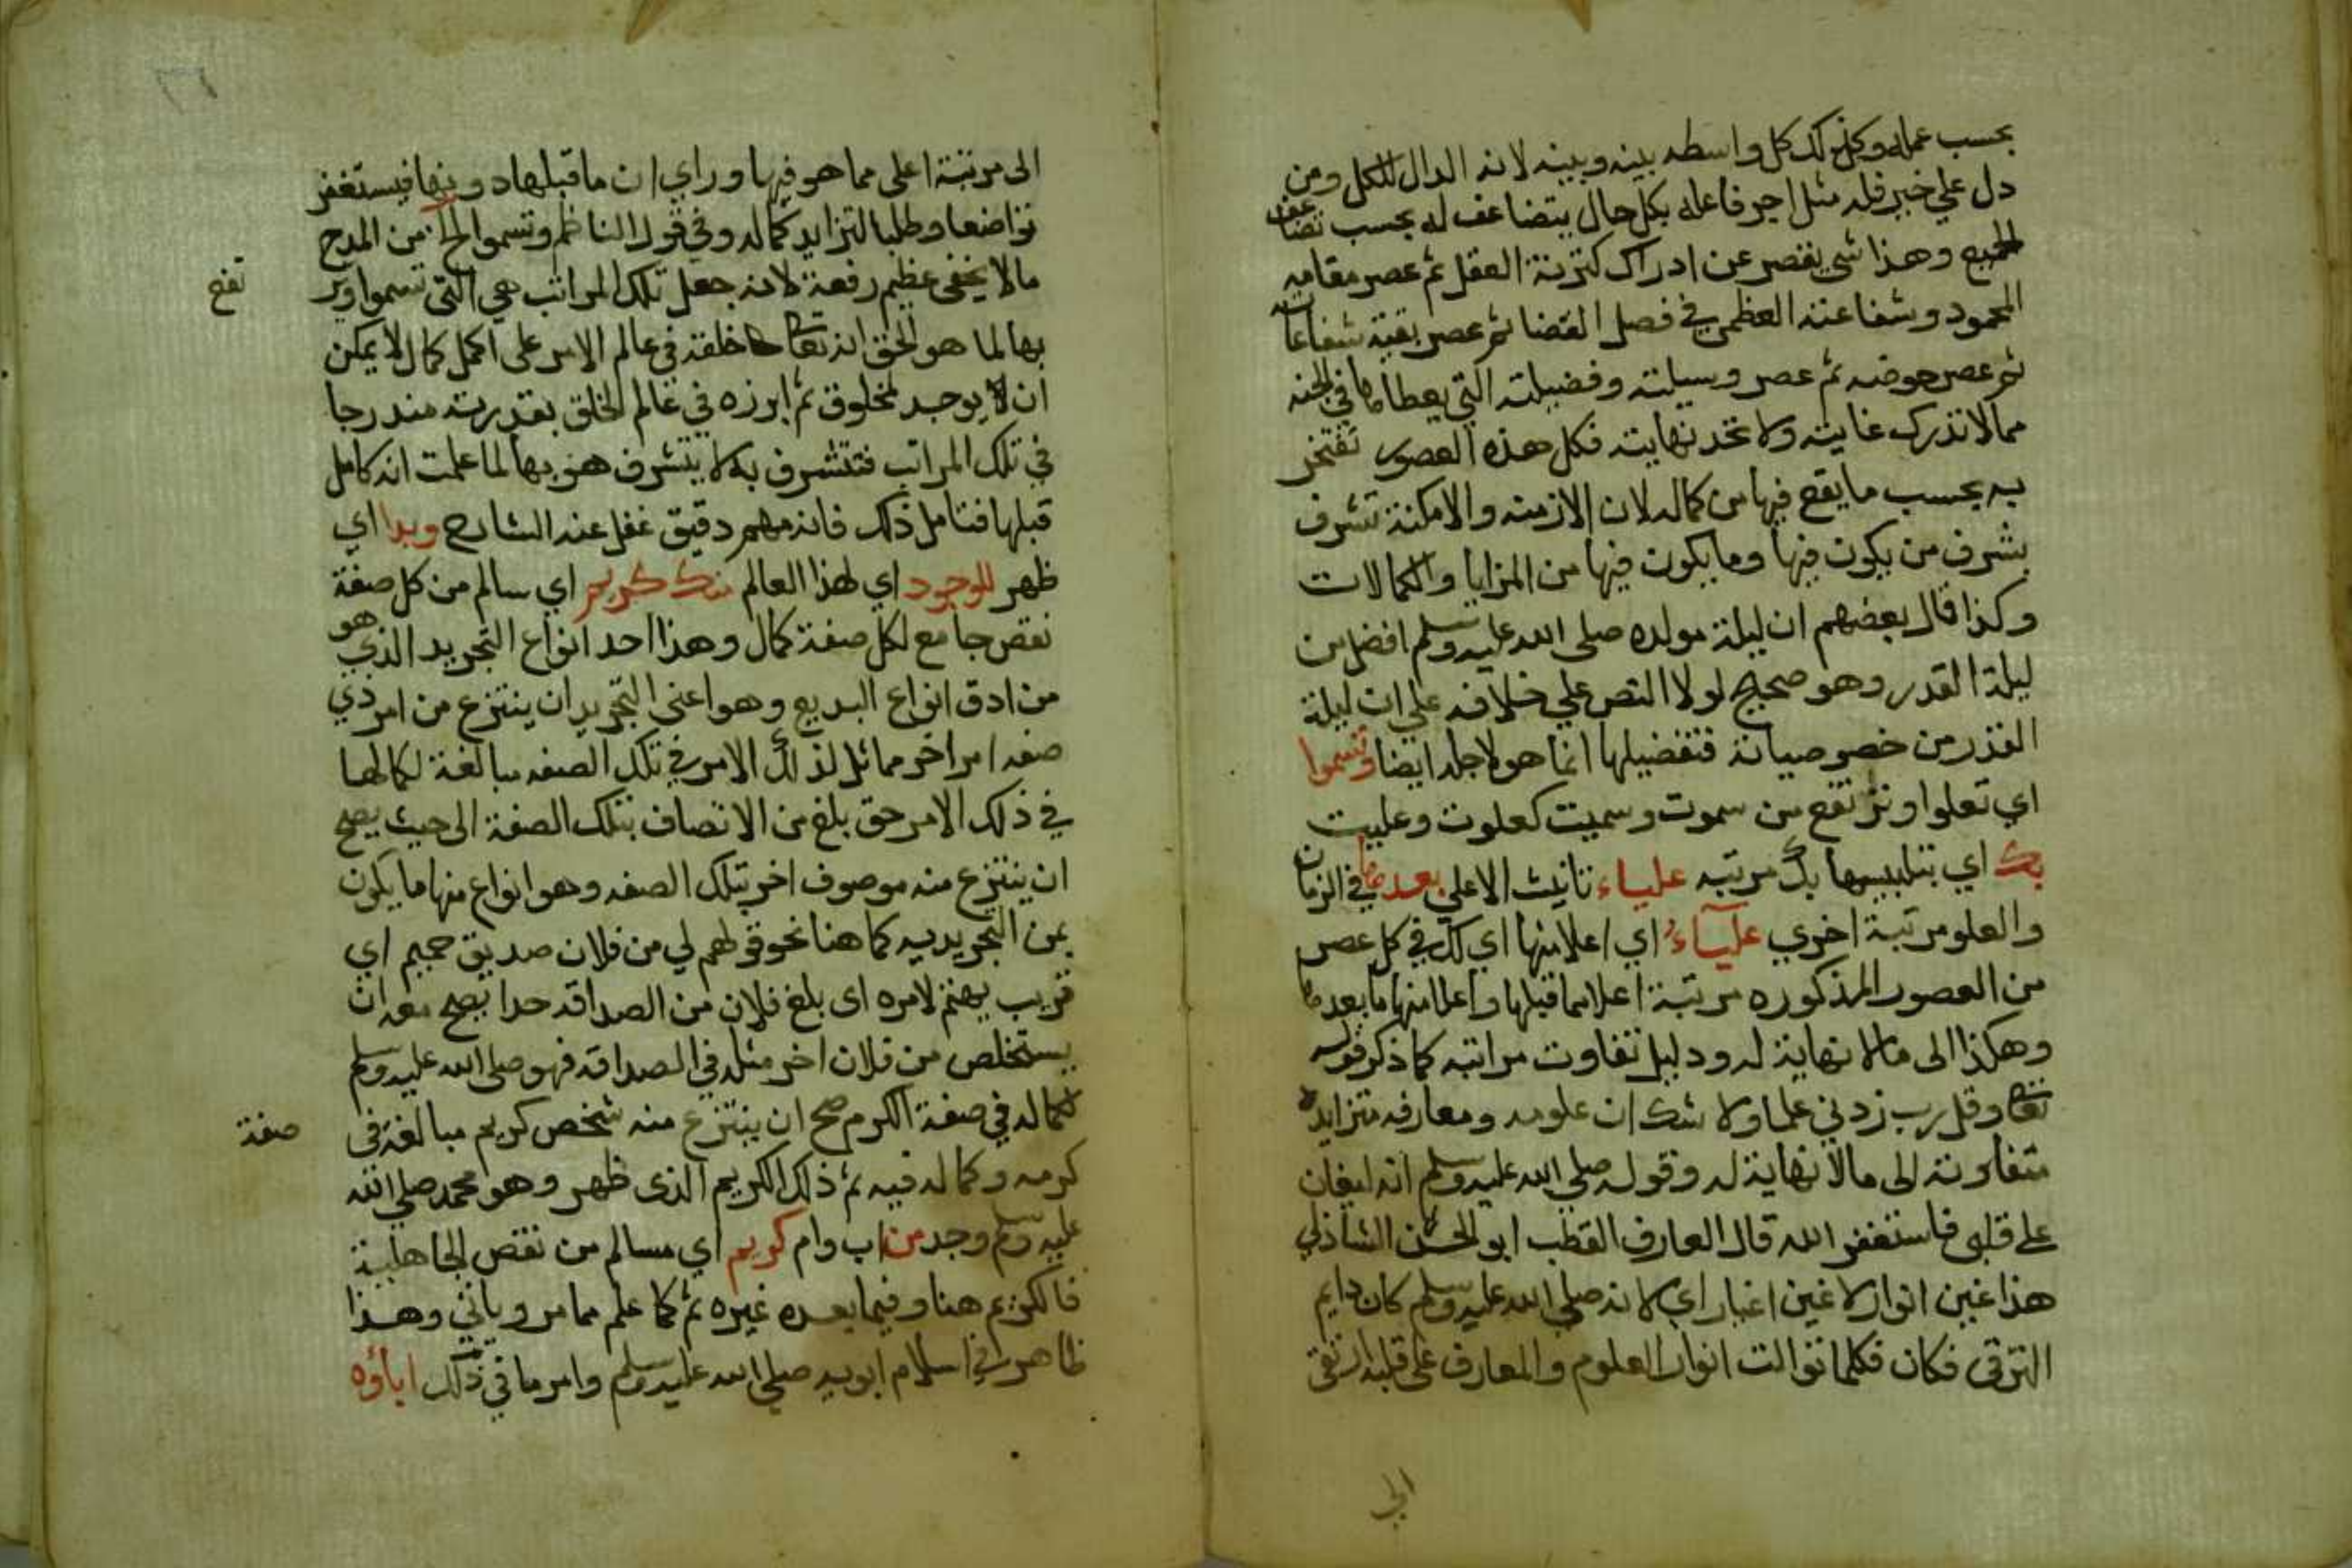 بحسب عمله وكذلك كل واسطه بينه وبينه لانه الدال للكل ومن
دل علي خير فله مثل اجر فاعله بكل حال يتضاعف له بحسب تضاعف
الجميع وهذا شي يقصر عن ادراك كثرته العقل ثم عصر مقامه
المحمود وشفاعته العظمي في فصل القضا ثم عصر بقية شفاعاته
ثم عصر حوضه ثم عصر وسيلته وفضيلته التي يعطاها في الجنه
مما لا تدرك غايته ولا تحد نهايته فكل هذه العصور تفتخر
به بحسب ما يقع فيها من كماله لان الازمنه والامكنة تشرف
بشرف من يكون فيها وما يكون فيها من المزايا والكمالات
وكذا قال بعضهم ان ليلة مولده صلى الله عليه وسلم افضل من
ليلة القدر وهو صحيح لولا النص علي خلافه علي ان ليلة
القدر من خصوصياته فتفضيلها انما هو لاجله ايضا وتسموا
اي تعلوا وترتفع من سموت وسميت كعلوت وعليت
بك اي بتلبيسها بك مرتبه علياء تانيث الاعلي بعدها في الزمان
والعلو مرتبة اخري علياء اي اعلا منها اي لك في كل عصر
من العصور المذكوره مرتبة اعلا مما قبلها واعلا منها ما بعدها
وهكذا الى ما لا نهاية له ودليل تفاوت مراتبه كما ذكر قوله
تعالى وقل رب زدني علما ولا شك ان علومه ومعارفه متزايده
متفاوتة الى ما لا نهاية له وقوله صلي الله عليه وسلم انه ليغان
على قلبى فاستغفر الله قال العارف القطب ابو الحسن الشاذلي
هذا غين انوار لا غين اغيار اي لانه صلي الله عليه وسلم كان دايم
الترقى فكان فكلما توالت انوار العلوم والمعارف على قلبه ارتقى
الى
الى مرتبة اعلى مما هو فيها وراي ان ما قبلها دونها فيستغفر
تواضعا وطلبا لتزايد كماله وفي قول الناظم وتسموا الخ من المدح
ما لا يخفى عظيم رفعة لانه جعل تلك المراتب هي التي تسموا وتر
تفع
بها لما هو الحق انه تعالى خلقه في عالم الامر على اكمل كمال لا يمكن
ان يوجد لمخلوق ثم ابرزه في عالم الخلق بقدرته مندرجا
في تلك المراتب فتتشرف به لا يتشرف هو بها لما علمت انه كامل
قبلها فتامل ذلك فانه مهم دقيق غفل عنه الشارح وبدا اي
ظهر للوجود اي لهذا العالم منك كريم اي سالم من كل صفة
نقص جامع لكل صفة كمال وهذا احد انواع التجريد الذي هو
من ادق انواع البديع وهو اعنى التجريد ان ينتزع من امر ذي
صفه امر اخر مماثل لذلك الامر في تلك الصفه مبالغة لكمالها
في ذلك الامر حتى بلغ من الاتصاف بتلك الصفة الى حيث يصح
ان ينتزع منه موصوف اخر بتلك الصفه وهو انواع منها ما يكون
بمن التجريديه كما هنا نحو قولهم لي من فلان صديق حميم اي
قريب يهتم لامره اى بلغ فلان من الصداقه حدا يصح معه ان
يستخلص من فلان اخر مثله في الصداقه فهو صلى الله عليه وسلم
لكماله في صفة الكرم صح ان ينتزع منه شخص كريم مبالغة فى
صفة
كرمه وكماله فيه ثم ذلك الكريم الذى ظهر وهو محمد صلي الله
عليه وسلم وجد من اب وام كريم اي مسالم من نقص الجاهلية
فالكريم هنا وفيما بعده غيره ثم كما علم مما مر وياتي وهذا
ظاهر في اسلام ابويه صلي الله عليه وسلم وامر ما في ذلك اباؤه